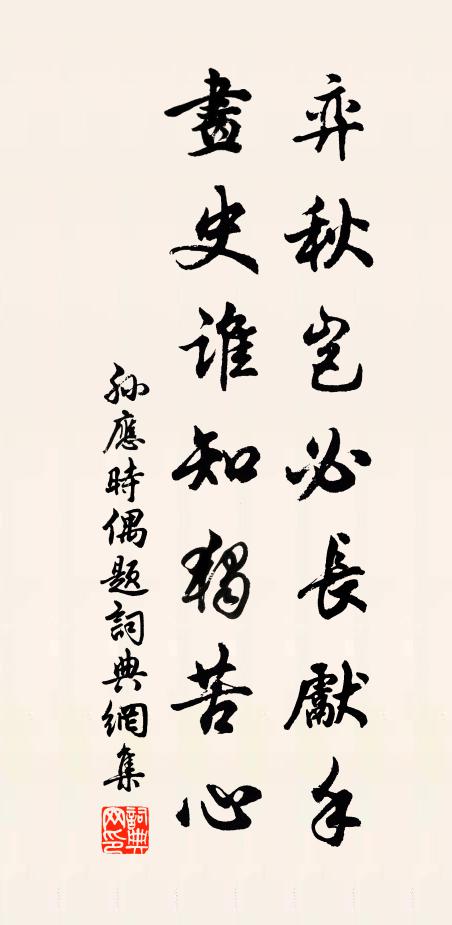 弈秋豈必長獻手
畫史誰知獨苦心
孫應時偶題詞典網集
詞典网印